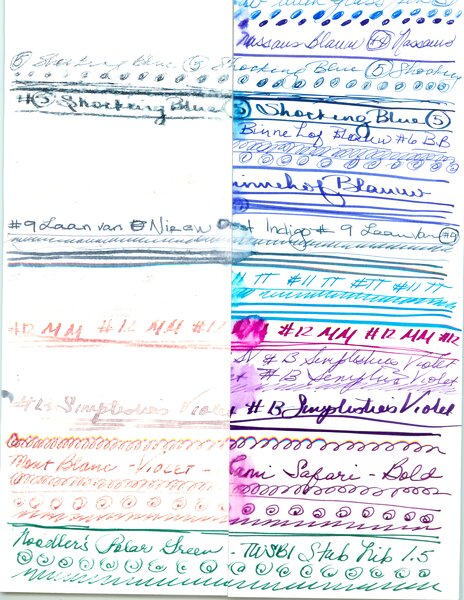 Nassaus Blauw #4 Nassaus
5 Shocking Blue 5 Shocking Blue 5 Shocking
#5 Shocking Blue 5 Shocking Blue 5
Binnehof Blauw #6 B.B
Binnehof Blauw
#9 Laan van Nieuw Oost Indigo # 9 Laan van #9
#11 TT #11 TT #11 TT
#12 MM #12 MM #12 MM #12 MM #12
# 13 Simplisties Violet
# 13 Simplisties Violet
#13 Simplisties Violet # 13 Simplisties Violet
Mont Blanc - VIOLET - Lami Safari - Bold
Noodler's Polar Green - TWSBI Stub Nib 1.5